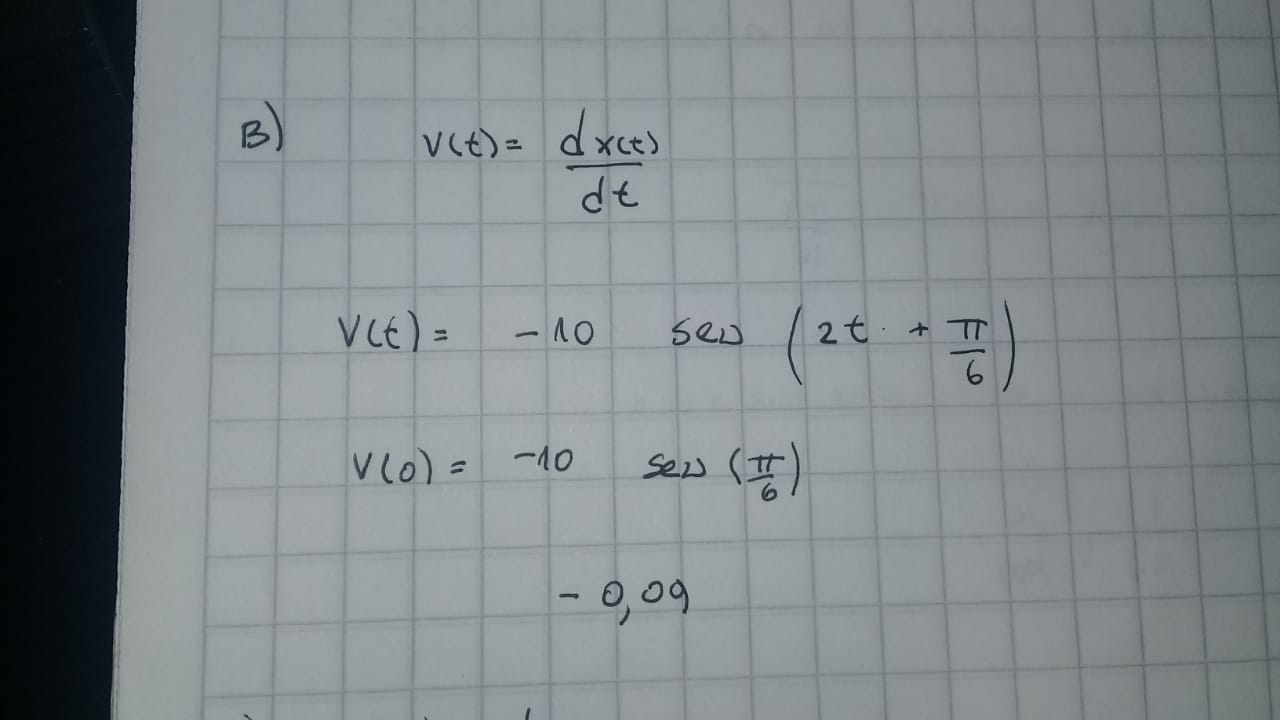 B) v(t) = dx(t)/dt
v(t) = -10 sen (2t + π/6)
v(0) = -10 sen (π/6)
- 0,09